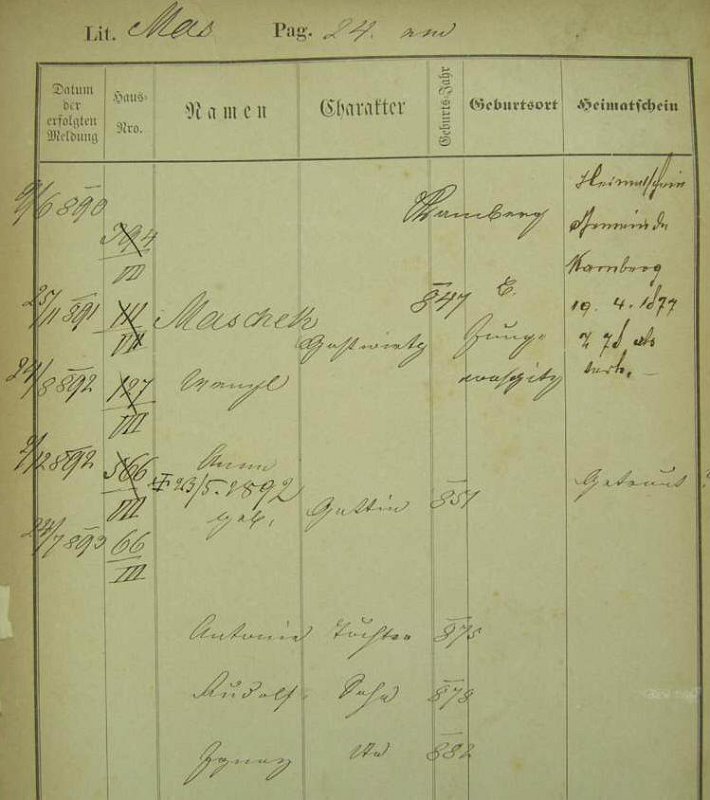 Lit. Mas Pag. 24.
Datum der erfolgten Meldung
Haus-Nro.
Namen
Charakter
Geburts-Jahr
Geburtsort
Heimatschein
9/6 890
394
III
Heimatschein
Gemeinde
Kamberg
19. 4. 1877
Z 78 als
25/11 891
111
III
Maschek
847
Gastwirth
Jung-
woschitz
24/8 892
127
III
Wenzl
9/12 892
366
III
Anna
23/5. 1892
geb.
Gattin
851
Getraut
24/7 893
66
III
Antonie Tochter 875
Rudolf Sohn 878
Ignaz dto 882